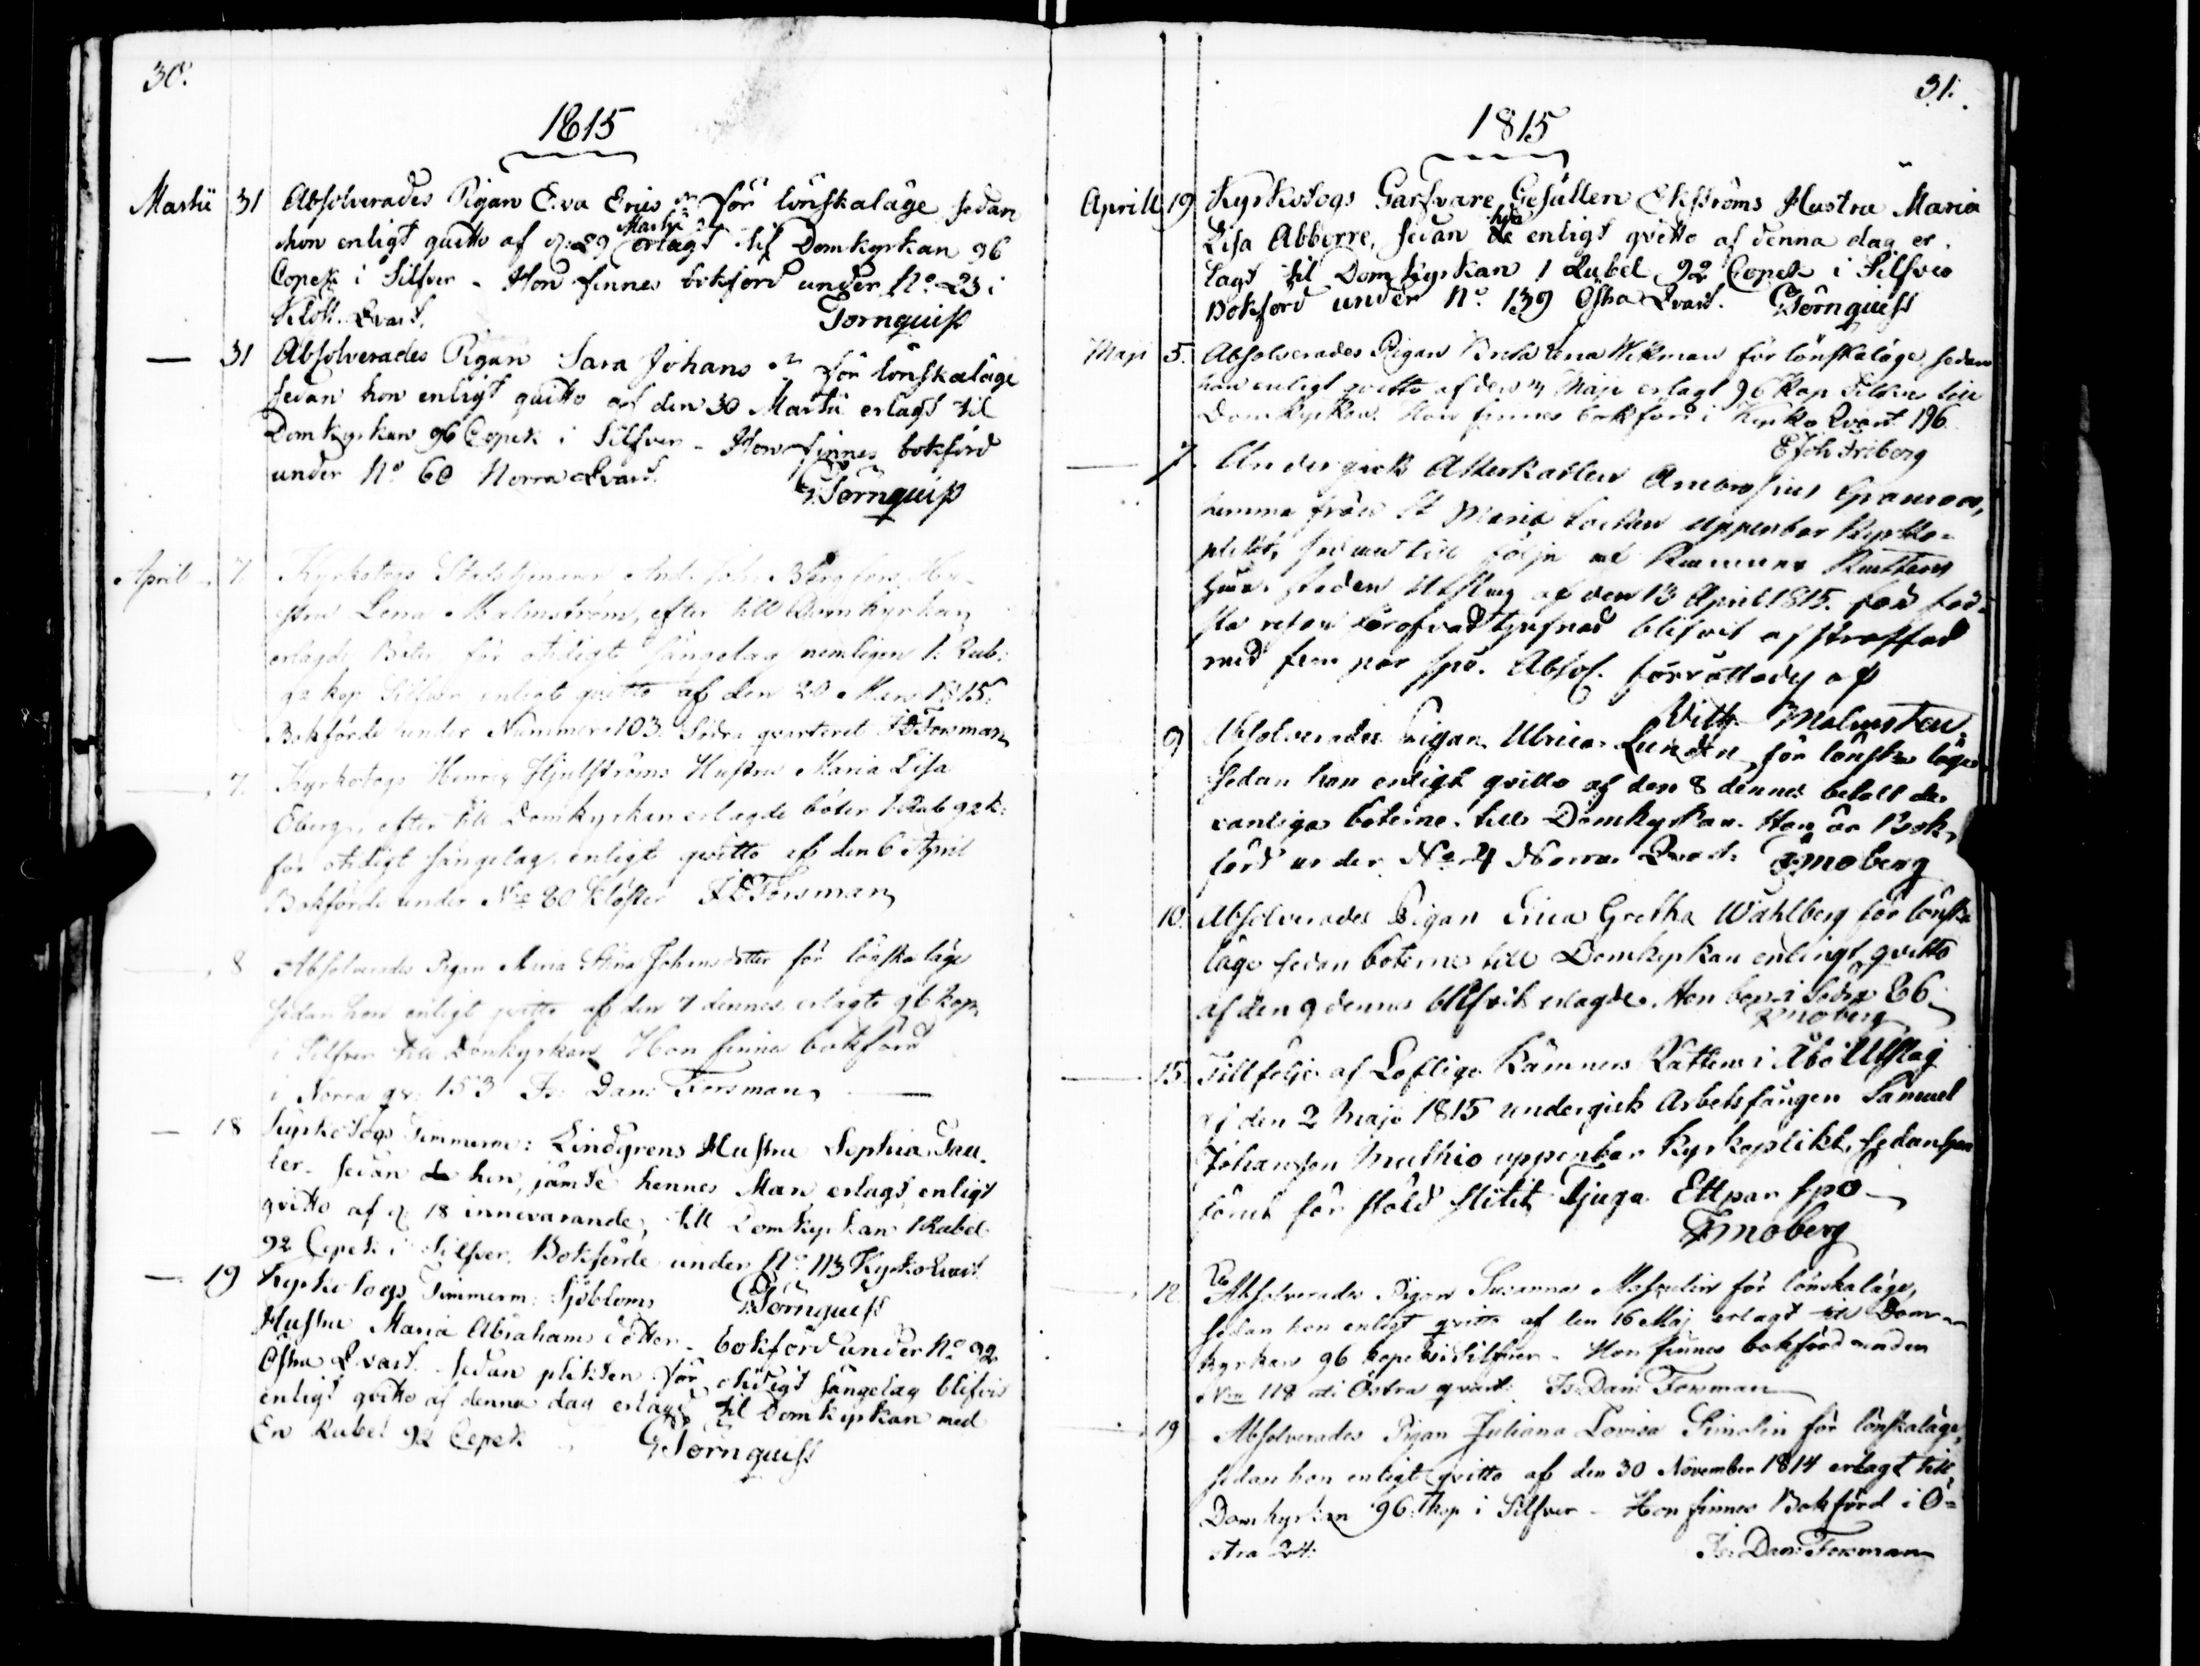 30.
1815
Martii 31 Absolverades Pigan Eva Erics dr för lönskaläge sedan
hon enligt quitto af d. 29 Martii erlagt til Domkyrkan 96
Copek i Silfver - Hon finnes bokförd under No 23 i
Klost. Qvart. Törnquist
— 31 Absolverades Pigan Sara Johans dr för lönskaläge
sedan hon enligt quitto af den 30 Martii erlagt til
Domkyrkan 96 Copek i Silfver - Hon finnes bokförd
under No 60 Norra Qvart.
GTörnquist
April - 7 Kyrkotogs Stadstjenaren And. Joh. Bergfors Hu-
stru Lena Malmström, efter till Domkyrkan
erlagde Böter för otidigt sängelag nemligen 1: Rub:
92 kop Silfver enligt qvitto af den 20 Mars 1815.
Bokförde under Nummer 103. Södra qvarteret. IDForsman
—, 7. Kyrkotogs Henric Hjulströms Hustru Maria Lisa
Öberg, efter till Domkyrkan erlagde böter 1 Rub 92 k:
för otidigt sängelag, enligt qvitto af den 6 April
Bokförde under Nro 80 Kloster IDForsman
—, 8 Absolverades Pigan Maria Stina Johansdotter för lönskaläge
sedan hon enligt qvitto af den 7 dennes erlagt 96 kop
i Silfver till Domkyrkan Hon finnes bokförd
i Norra qv: 153 Is: Dan: Forsman
— 18 Kyrkotogs Timmerm: Lindgrens Hustru Sophia
ler. sedan de hon, jämte hennes Man erlagt enligt
qvitto af d. 18 innevarande, till Domkyrkan 1 Rubel
92 Copek i Silfver. Bokförde under No 113 Kyrko Qvart.
— 19 Kyrkotogs Timmerm: Sjöbloms GTörnquist
Hustru Maria Abrahams dotter - bokförd under No 92
Östra Qvart. sedan plikten för otidigt sängelag blifvit
enligt qvitto af denna dag erlagd til Domkyrkan med
En Rubel 92 Copek GTörnquist
31.
1815
Aprill 19 Kyrkotogs Garfvare Gesällen Ekströms Hustru Maria
Lisa Abborre, sedan de hon enligt qvitto af denna dag er-
lagt til Domkyrkan 1 Rubel 92 Copek i Silfver
Bokförd under No 139 Östra Qvart. GTörnquist
Maji 5. Absolverades Pigan Brita Lena Wikman för lönskaläge, sedan
hon enligt qvitto af den 4 Maji erlagt 96 Kop Silfver till
Domkyrkan. Hon finnes bokförd i Kyrko Qvart 196.
E Joh Friberg
— 7. Undergick Afskedade Ambrosius
hemma från St Maria Socken uppenbar Kyrko-
plikt, som till följe af Kämners Rättens
utslag af den 13 April 1815. för för-
sta resan föröfvad tjufnad blifvit afstraffad
med fem par spö. Absol. förrättades af
Wilh. Malmsten.
9 Absolverades Pigan Ulrica Lundén för lönskaläge
sedan hon enligt qvitto af den 8 dennes betalt de
vanliga böterne till Domkyrkan. Hon är Bok-
förd under No 4 Norra Qvart: FMoberg
10. Absolverades Pigan Greta Wahlberg för lönska
läge sedan böterne till Domkyrkan enlingt qvitto
af den 9 dennes blifvit erlagde. Hon bor i Södra 86.
FMoberg
— 15. Till följe af Loflige Kämners Rättens i Åbo Utslag
af den 2 Maji 1815 undergick Arbetsfången Samuel
Johansson Mulhio uppenbar Kyrkoplikt, sedan han
förut för stöld slitit Tjugo Ett par spö
FMoberg
—, 12. Absolverades Pigan Susanna Masculin för lönskaläge,
sedan hon enligt qvitto af den 16 Maj erlagt till Dom-
kyrkan 96 kopek i Silfver - Hon finnes bokförd under
Nro 118 uti Östra qvart: Is: Dan: Forsman
— 19 Absolverades Pigan Juliana Lovisa Simolin för lönskaläge,
sedan hon enligt qvitto af den 30 November 1814 erlagt till
Domkyrkan 96 kop i Silfver - Hon finnes Bokförd i Ö-
stra 24: Is: Dan: Forsman